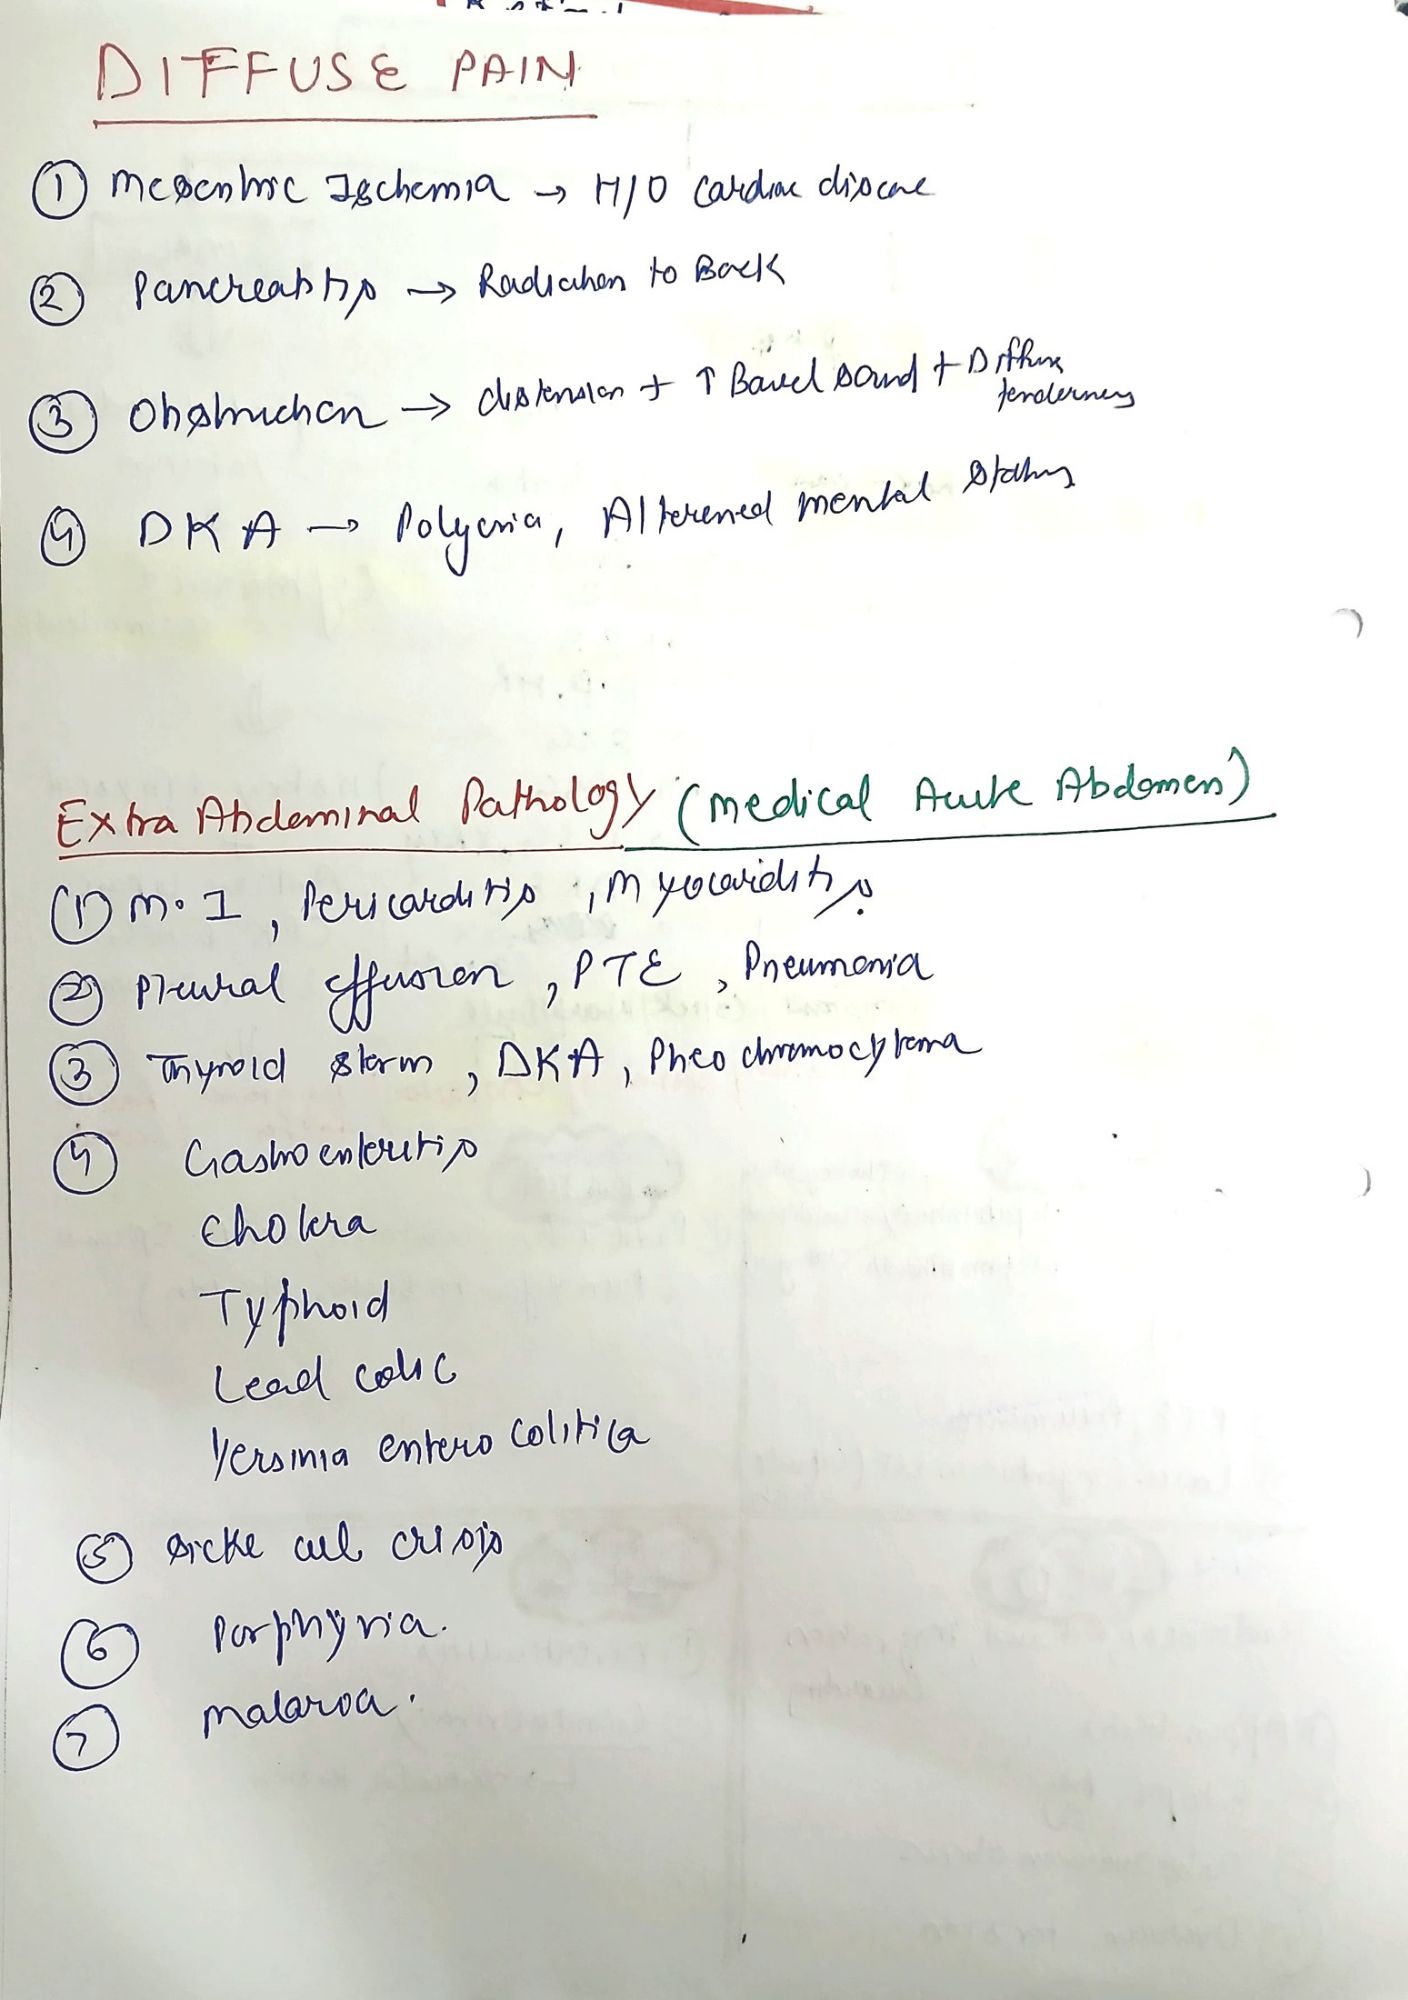 DIFFUSE PAIN
① Mesentric Ischemia → H/O Cardiac disease
② Pancreatitis → Radiation to Back
③ Obstruction → distension + ↑ Bowel sound + Diffuse tenderness
④ DKA → Polyuria, Alterened mental status
Extra Abdominal Pathology (medical Acute Abdomen)
① M.I, Pericarditis, Myocarditis
② Pleural effusion, PTE, Pneumonia
③ Thyroid storm, DKA, Pheochromocytoma
④ Gastroenteritis
Cholera
Typhoid
Lead colic
Yersinia enterocolitica
⑤ Sickle cell crisis
⑥ Porphyria.
⑦ Malaria.